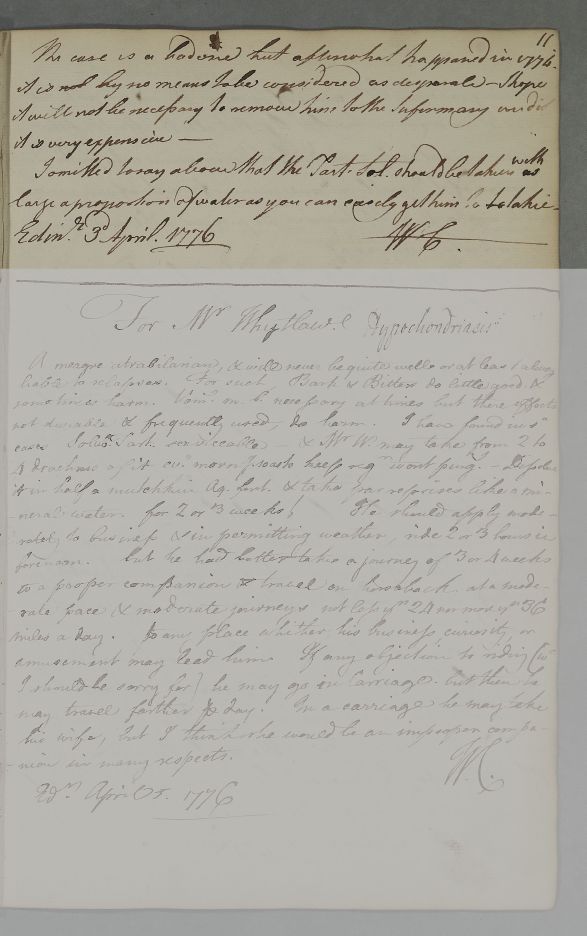 11
The case is a bad one but after what happened in 1774
it is not by no means to be considered as desperate – I hope
it will not be necessary to remove him to the Infirmary and it
is very expensive —
I omitted to say above that the Tart. Sol. should be taken with as
large a proportion of water as you can easily get him to take –
Edinr. 3d April. 1776 W C.
For Mr Whytlaw. Hypochondriasis
A meagre atrabilarian, & will never be quite well or at least always
liable to relapses. For such Bark & Bitters do little good &
sometimes harm. Vomts. m. b. necessary at times but there effects
not durable & frequently used, do harm. I have found in ys
cases Tart. serviceable – & Mr W. may take from 2 to
4 drachms of it evy morng so as to keep regr. – Dissolve
it in half a mutchkin Aq. font. & take par reprises like a mi-
neral water. for 2 or 3 weeks. He should apply mode-
rately to business & in permitting weather, ride 2 or 3 hours in
forenoon. but he had better take a journey of 3 or 4 weeks
to a proper companion & travel on horseback at a mode-
rate pace & moderate journeys not less yn 24 nor more yn 36
miles a day. To any place whither his business curiosity, or
amusement may lead him. If any objection to riding (wc
I should be sorry for) he may go in Carriage. but then he
may travel farther day. In a carriage he may take
his wife, but I think she would be an improper compa-
nion in many respects. W.C.
Edr April 1776